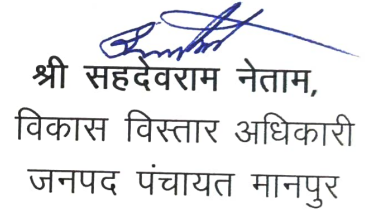 श्री सहदेवराम नेताम,
विकास विस्तार अधिकारी
जनपद पंचायत मानपुर